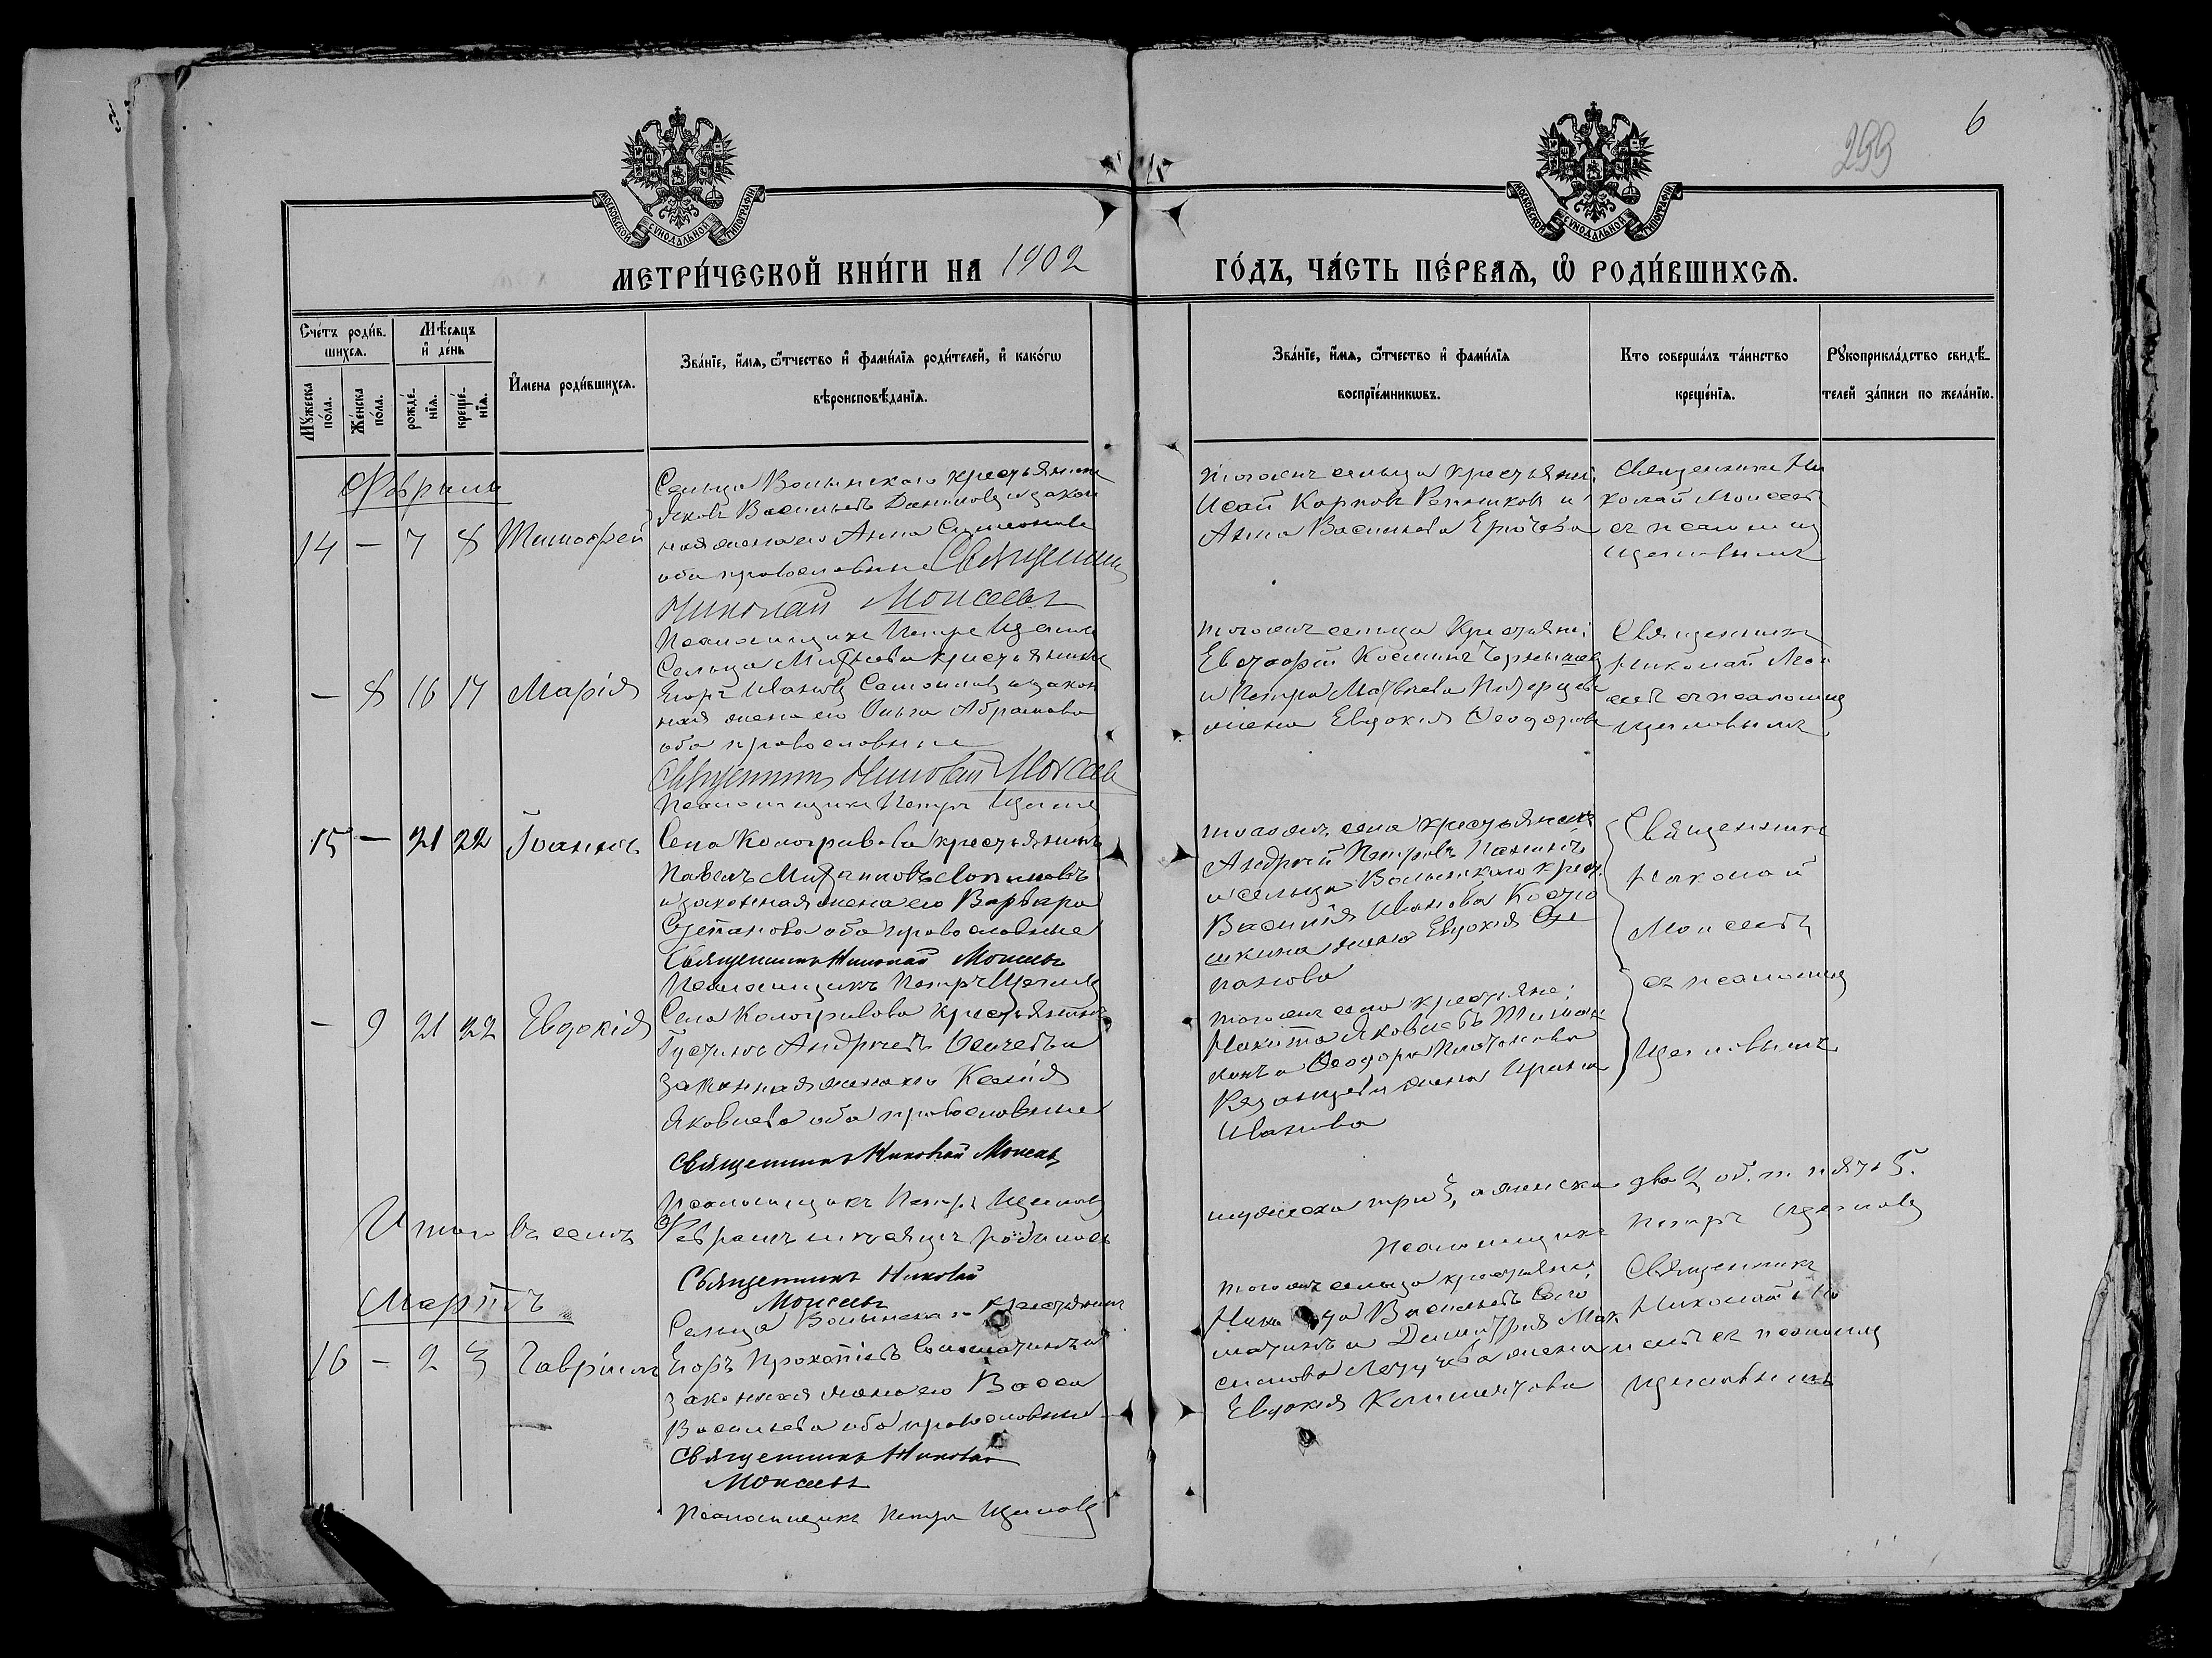 6
299
МОСКОВСКОЙ СѴНОДАЛЬНОЙ ТИПОГРАФІИ
МОСКОВСКОЙ СѴНОДАЛЬНОЙ ТИПОГРАФІИ
МЕТРИ́ЧЕСКОЙ КНИ́ГИ НА 1902 ГО́ДЪ, ЧА́СТЬ ПЕ́РВАЯ, Ѡ РОДИ́ВШИХСЯ.
Сче́тъ роди́в-
шихся.
Мꙋжеска по́ла.
Же́нска по́ла.
Мѣ́сяцъ
и҆ де́нь
рожде́-
нїя.
креще́-
нїя.
И҆мена роди́вшихся.
Зва́нїе, и҆́мя, ѻ҆́тчество и҆ фами́лїя роди́телей, и҆ како́гѡ
вѣроисповѣ́данїя.
Зва́нїе, и҆́мя, ѻ҆́тчество и҆ фами́лїя
воспрїе́мникѡвъ.
Кто соверша́лъ та́инство
креще́нїя.
Рꙋкоприкла́дство свидѣ́-
телей за́писи по жела́нїю.
Февраль
14 — 7 8 Тимофей
Сельца Волынскаго крестьянинъ
Яковъ Васильевъ Даниловъ и закон
ная жена его Анна Симеонова
оба православные Священникъ
Николай Моисеевъ
Псаломщикъ Петръ Щегловъ
тогоже сельца крестьяне:
Исай Карповъ и
Анна Васильева
Священникъ Ни
колай Моисеевъ
съ псаломщ
Щегловымъ
— 8 16 17 Марія
Сельца крестьянинъ
Егоръ Ивановъ Самойловъ и закон
ная жена его Ольга Абрамова
оба православные
Священникъ Николай Моисеевъ
Псаломщикъ Петръ Щегловъ
тогоже сельца Крестьяне:
Евстафій Косминъ
и Петра Матвѣева
жена Евдокия Ѳеодорова
Священникъ
Николай Мои
сеевъ съ псаломщ
Щегловымъ
15 — 21 22 Іоаннъ
Села Кологривова крестьянинъ
Павелъ Михаиловъ
и законная жена его Варвара
Степанова оба православные
Священникъ Николай Моисеевъ
Псаломщикъ Петръ Щегловъ
тогоже села крестьянинъ
Андрей Петровъ
и сельца Волынскаго крест.
Василія Иванова Костю
шкина жена Евдокия Сте
панова
Священникъ
Николай
Моисеевъ
съ псаломщ
Щегловымъ
— 9 21 22 Евдокія
Села Кологривова Крестьянинъ
Густинъ Андреевъ и
законная жена его Ксенія
Яковлева оба православные
Священникъ Николай Моисеевъ
Псаломщикъ Петръ Щегловъ
тогоже села крестьяне:
Никита Яковлевъ
и Ѳеодора Платонова
жена Ирина
Иванова
Итого въ семъ Февралѣ мѣсяцѣ родилось
мужеска три 3, а женска два 2, об. п. пять 5.
Священникъ Николай
Моисеевъ
Псаломщикъ Петръ Щегловъ
Мартъ
16 — 2 3 Гавріилъ
Сельца Волынскаго крестьянинъ
Егоръ Прокопіевъ и
законная жена его Васса
Васильева оба православные
Священникъ Николай
Моисеевъ
Псаломщикъ Петръ Щегловъ
тогоже сельца крестьяне:
Васильевъ
и Димитрия Мак
симова жена
Евдокия
Священникъ
Николай Мо
исеевъ съ псаломщ
Щегловымъ